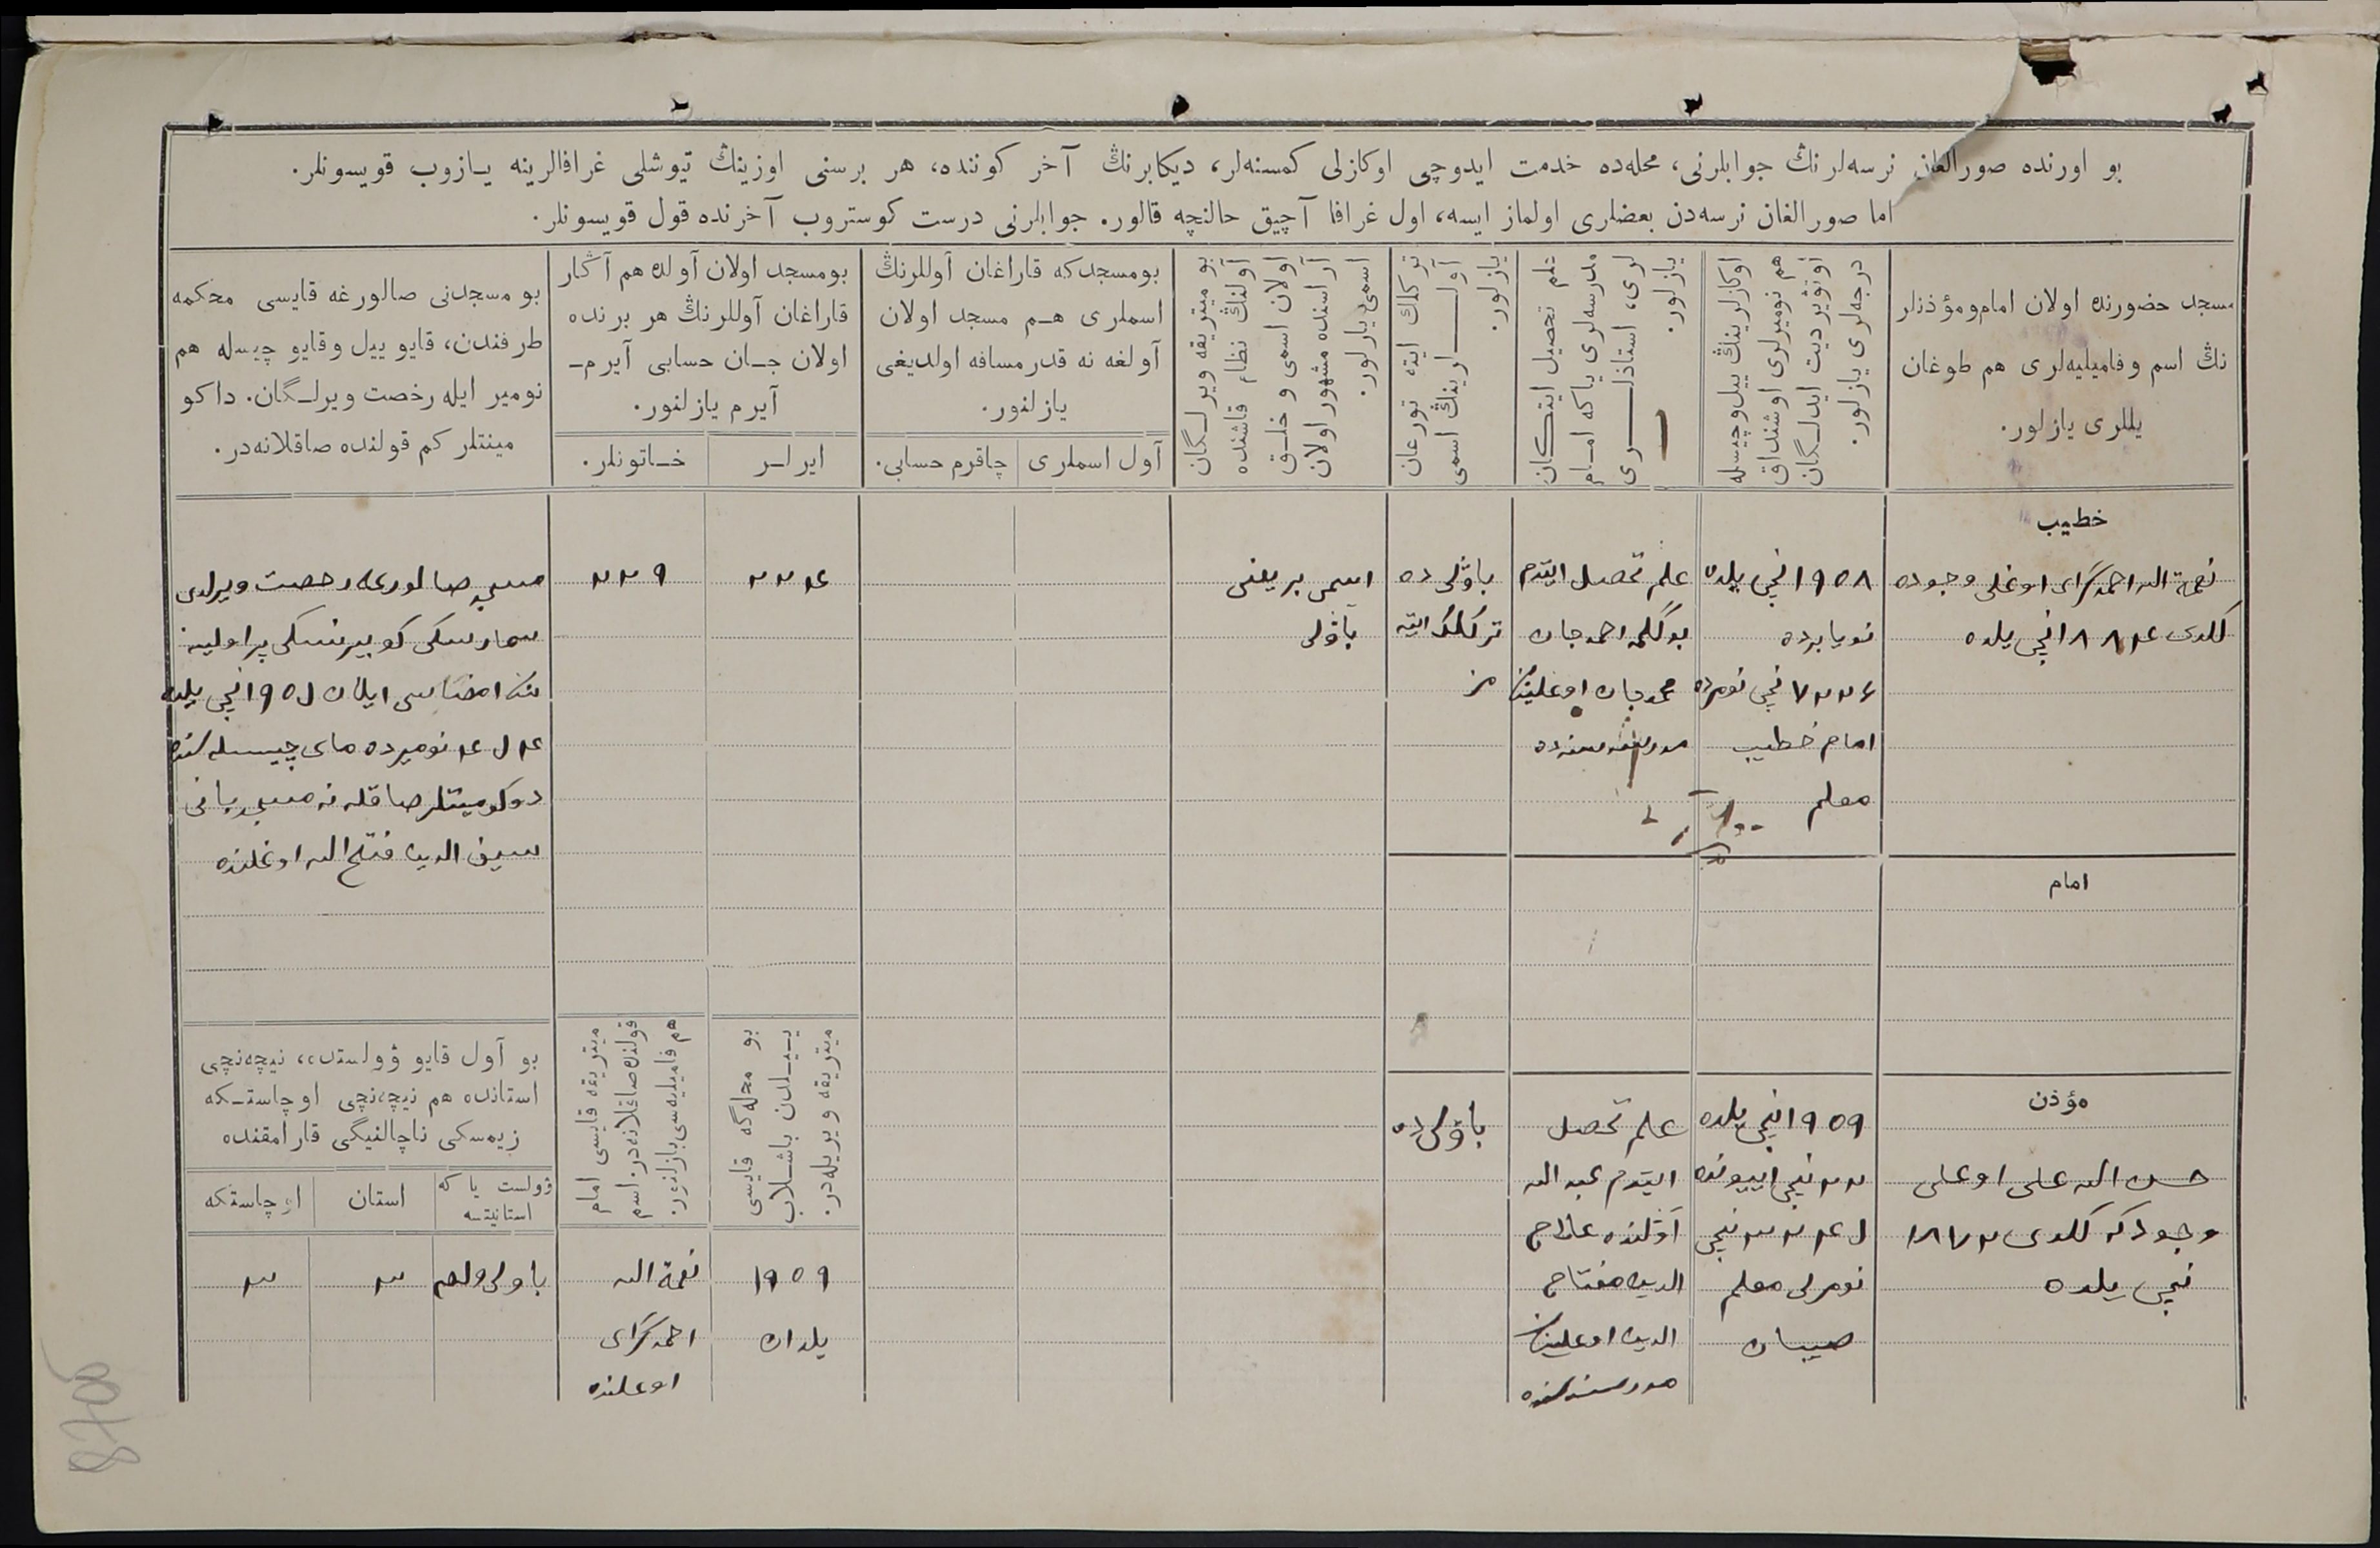 بو اورنده صورالغان نرسه‌لرنڭ جوابلرنی، محله‌ده خدمت ایدوچی اوکازلی کمسنه‌لر، دیکابرنڭ آخر کوننده، هر برسنی اوزینڭ تیوشلی غرافالرینه یازوب قویسونلر.
اما صورالغان نرسه‌دن بعضلری اولماز ایسه، اول غرافا آچیق حالنچه قالور. جوابلرنی درست کوستروب آخرنده قول قویسونلر.
مسجد حضورنده اولان امام ومؤذنلر
نڭ اسم وفامیلیه‌لری هم طوغان
یللری یازلور.
اوکازلرینڭ ییل وچیسله
هم نومیرلری اوشنداق
اوتویردیت ایدلگان
درجه‌لری یازلور.
علم تحصیل ایتکان
مدرسه‌لری یاکه امام
لری، استاذلری
یازلور.
ترکلک ایته تورغان
آوللرینڭ اسمی
یازلور.
بو میتریقه ویرلگان
آولنڭ نظام قاشنده
اولان اسمی و خلق
آراسنده مشهور اولان
اسمی یازلور.
بومسجدکه قاراغان آوللرنڭ
اسملری هم مسجد اولان
آولغه نه قدر مسافه اولدیغی
یازلنور.
آول اسملری
چاقرم حسابی.
بومسجد اولان آولده هم آڭار
قاراغان آوللرنڭ هر برنده
اولان جان حسابی آیرم-
آیرم یازلنور.
ایرلر
خاتونلر.
بو مسجدنی صالورغه قایسی محکمه
طرفندن، قایو ییل وقایو چیسله هم
نومیر ایله رخصت ویرلگان. داکو
مینتلر کم قولنده صاقلانه‌در.
خطیب
نعمة الله احمدکرای اوغلی وجوده
کلدی ۱۸۸۴ انچی یلده
۱۹۰۸ انچی یلده
نویابرده
۷۲۲۶ نچی نومرده
امام خطیب
معلم
علم تحصیل ایتدم
بوگلمه احمدجان
محمدجان اوغلینڭ
مدرسه‌سنده
باولی ده
ترکلک ایته
من
اسمی بر یعنی
باولی
۲۲۴
۲۲۹
مسجد صالورغه رخصت ویرلدی
سمارسکی کوبیرنسکی پراولینه
۱۹۰۱ انچی یلده
۴۱۴ نومیرده مای چیسله‌سنده
دوکومینتلر صاقلنه مسجد بانی
سیف الدین فتح الله اوغلنده
امام
مؤذن
حسن الله علی اوغلی
وجودکه کلدی ۱۸۷۲
نچی یلده
۱۹۰۹ انچی یلده
۲۲ نچی اییونده
۳۲۴۱ نچی
نومرلی معلم
صبیان
علم تحصیل
ایتدم عبد الله
آولنده علاج
الدین مفتاح
الدین اوغلینڭ
مدرسه‌سنده
باولی ده
بو محله‌گه قایسی
ییلدن باشلاب
میتریقه ویریله‌در.
میتریقه قایسی امام
قولنده صاقلانه‌در. اسم
هم فامیلیه‌سی یازلنور.
بو آول قایو ؤولستده، نیچه‌نچی
استانده هم نیچه‌نچی اوچاستکه
زیمسکی ناچالنیگی قارامقنده
ؤولست یا که استانیتسه
استان
اوچاستکه
۱۹۰۹
یلدان
نعمة الله
احمدکرای
اوغلنده
باولی ولصی
۳
۳